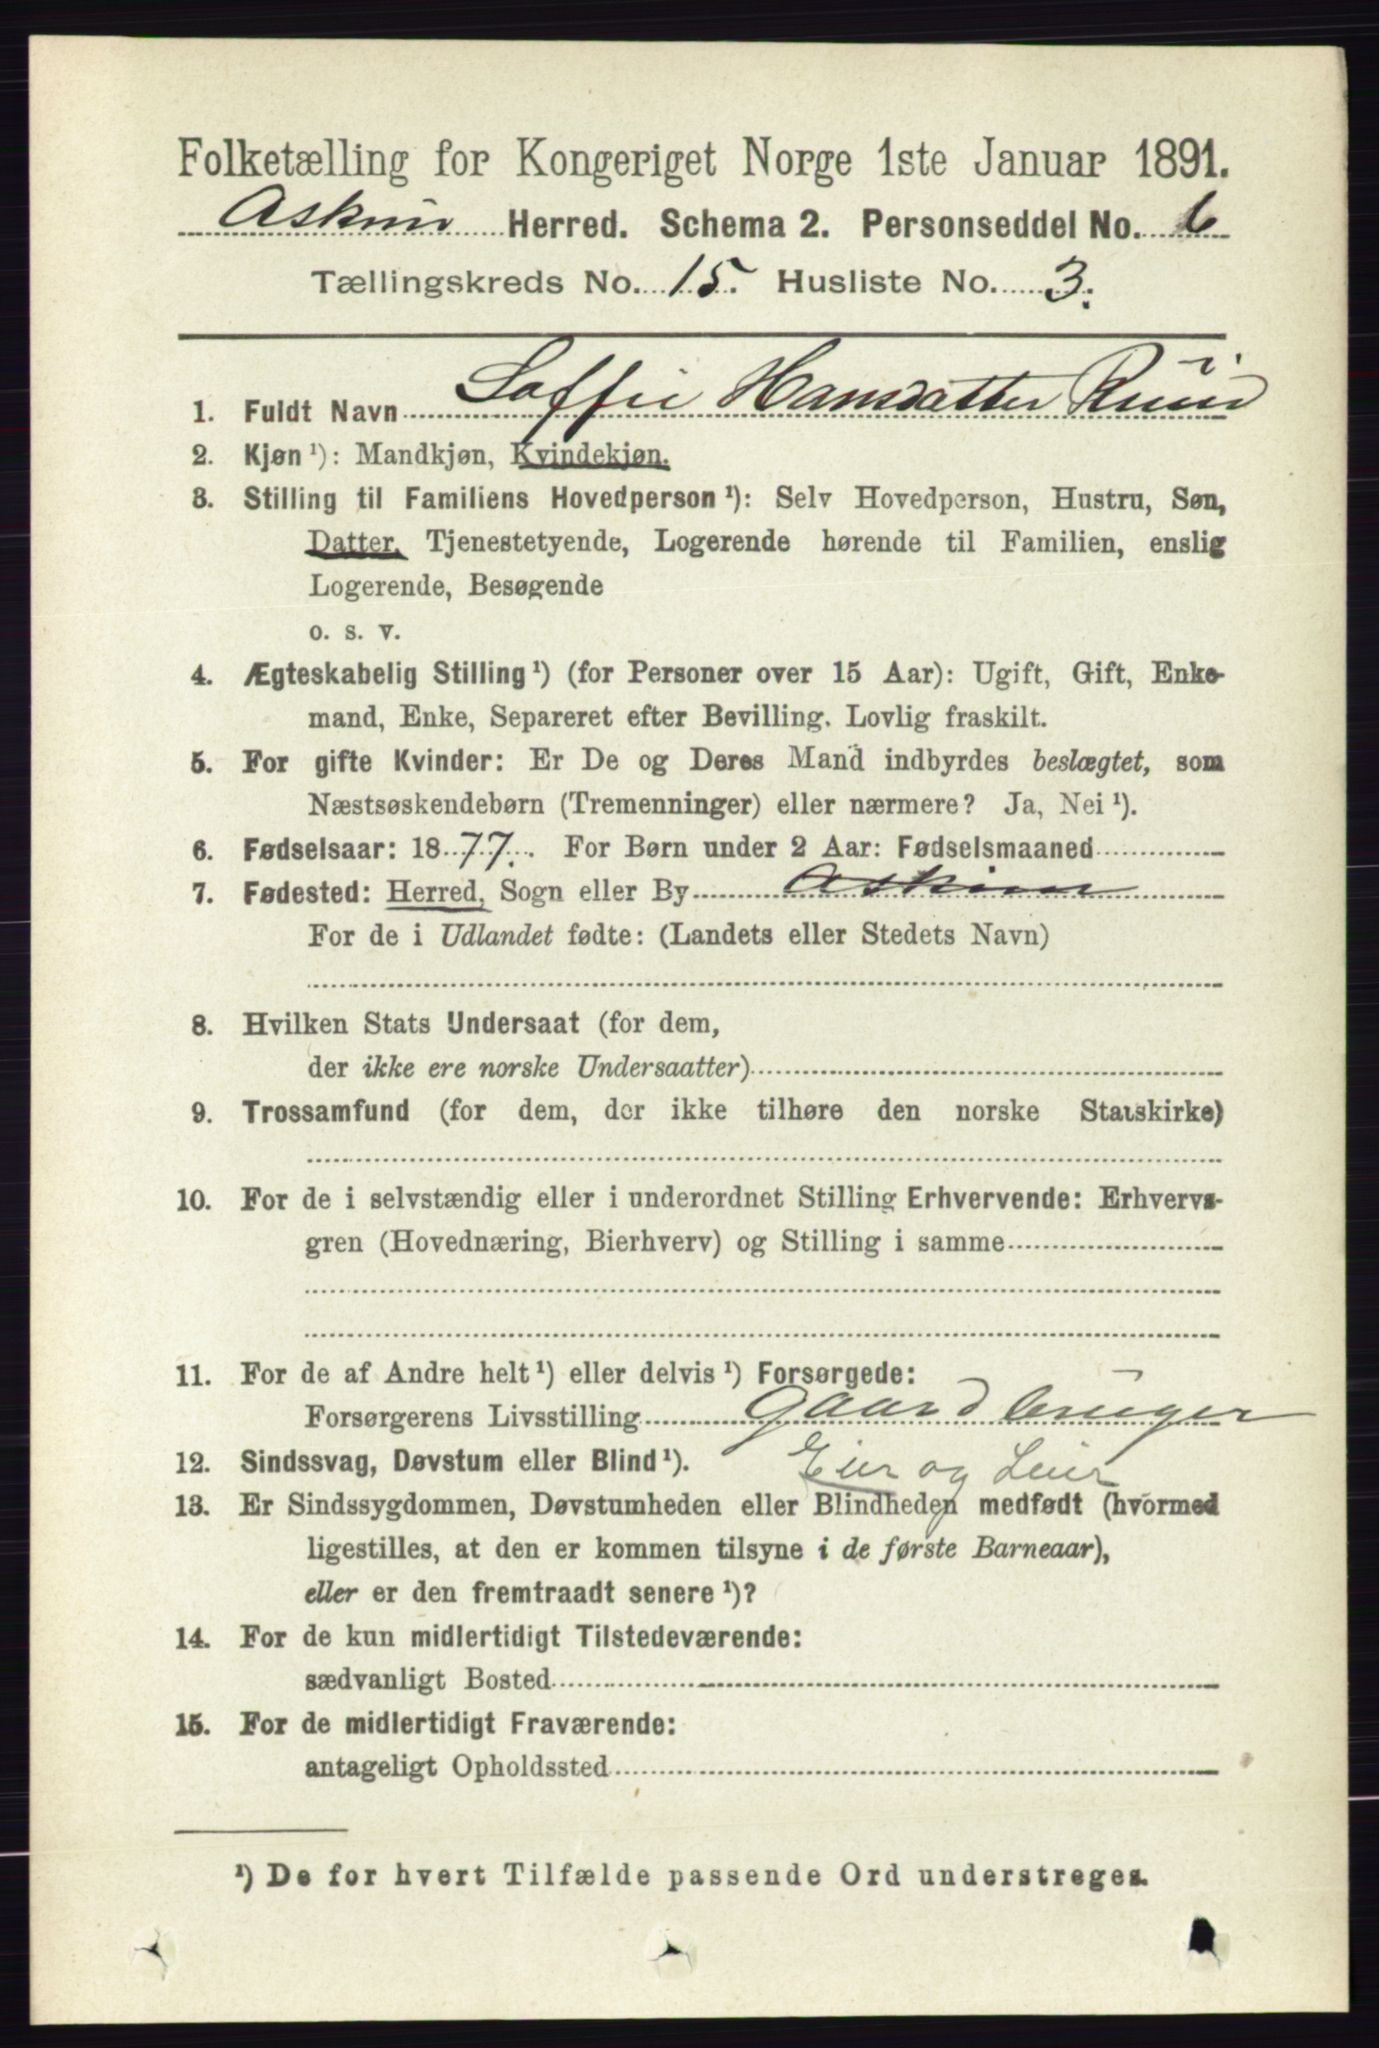 Folketælling for Kongeriget Norge 1ste Januar 1891.
Askim Herred. Schema 2. Personseddel No. 6
Tællingskreds No. 15. Husliste No. 3.
1. Fuldt Navn Soffie Hansdatter Ruud
2. Kjøn ¹): Mandkjøn, Kvindekjøn.
3. Stilling til Familiens Hovedperson ¹): Selv Hovedperson, Hustru, Søn,
Datter, Tjenestetyende, Logerende hørende til Familien, enslig
Logerende, Besøgende
o. s. v.
4. Ægteskabelig Stilling ¹) (for Personer over 15 Aar): Ugift, Gift, Enke-
mand, Enke, Separeret efter Bevilling. Lovlig fraskilt.
5. For gifte Kvinder: Er De og Deres Mand indbyrdes beslægtet, som
Næstsøskendebørn (Tremenninger) eller nærmere? Ja, Nei ¹).
6. Fødselsaar: 1877. For Børn under 2 Aar: Fødselsmaaned
7. Fødested: Herred, Sogn eller By Askim
For de i Udlandet fødte: (Landets eller Stedets Navn)
8. Hvilken Stats Undersaat (for dem,
der ikke ere norske Undersaatter)
9. Trossamfund (for dem, der ikke tilhøre den norske Statskirke)
10. For de i selvstændig eller i underordnet Stilling Erhvervende: Erhvervs-
gren (Hovednæring, Bierhverv) og Stilling i samme
11. For de af Andre helt ¹) eller delvis ¹) Forsørgede:
Forsørgerens Livsstilling Gaardbruger
12. Sindssvag, Døvstum eller Blind ¹). Eier og Leier
13. Er Sindssygdommen, Døvstumheden eller Blindheden medfødt (hvormed
ligestilles, at den er kommen tilsyne i de første Barneaar),
eller er den fremtraadt senere ¹)?
14. For de kun midlertidigt Tilstedeværende:
sædvanligt Bosted
15. For de midlertidigt Fraværende:
antageligt Opholdssted
¹) De for hvert Tilfælde passende Ord understreges.